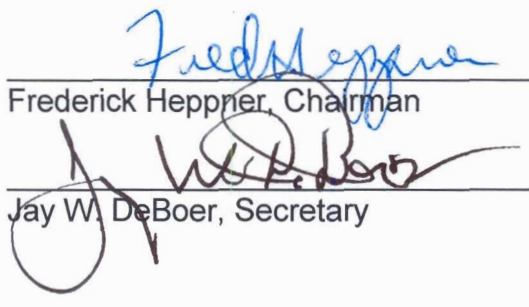 Fred Heppner
Frederick Heppner, Chairman
Jay W. DeBoer
Jay W. DeBoer, Secretary